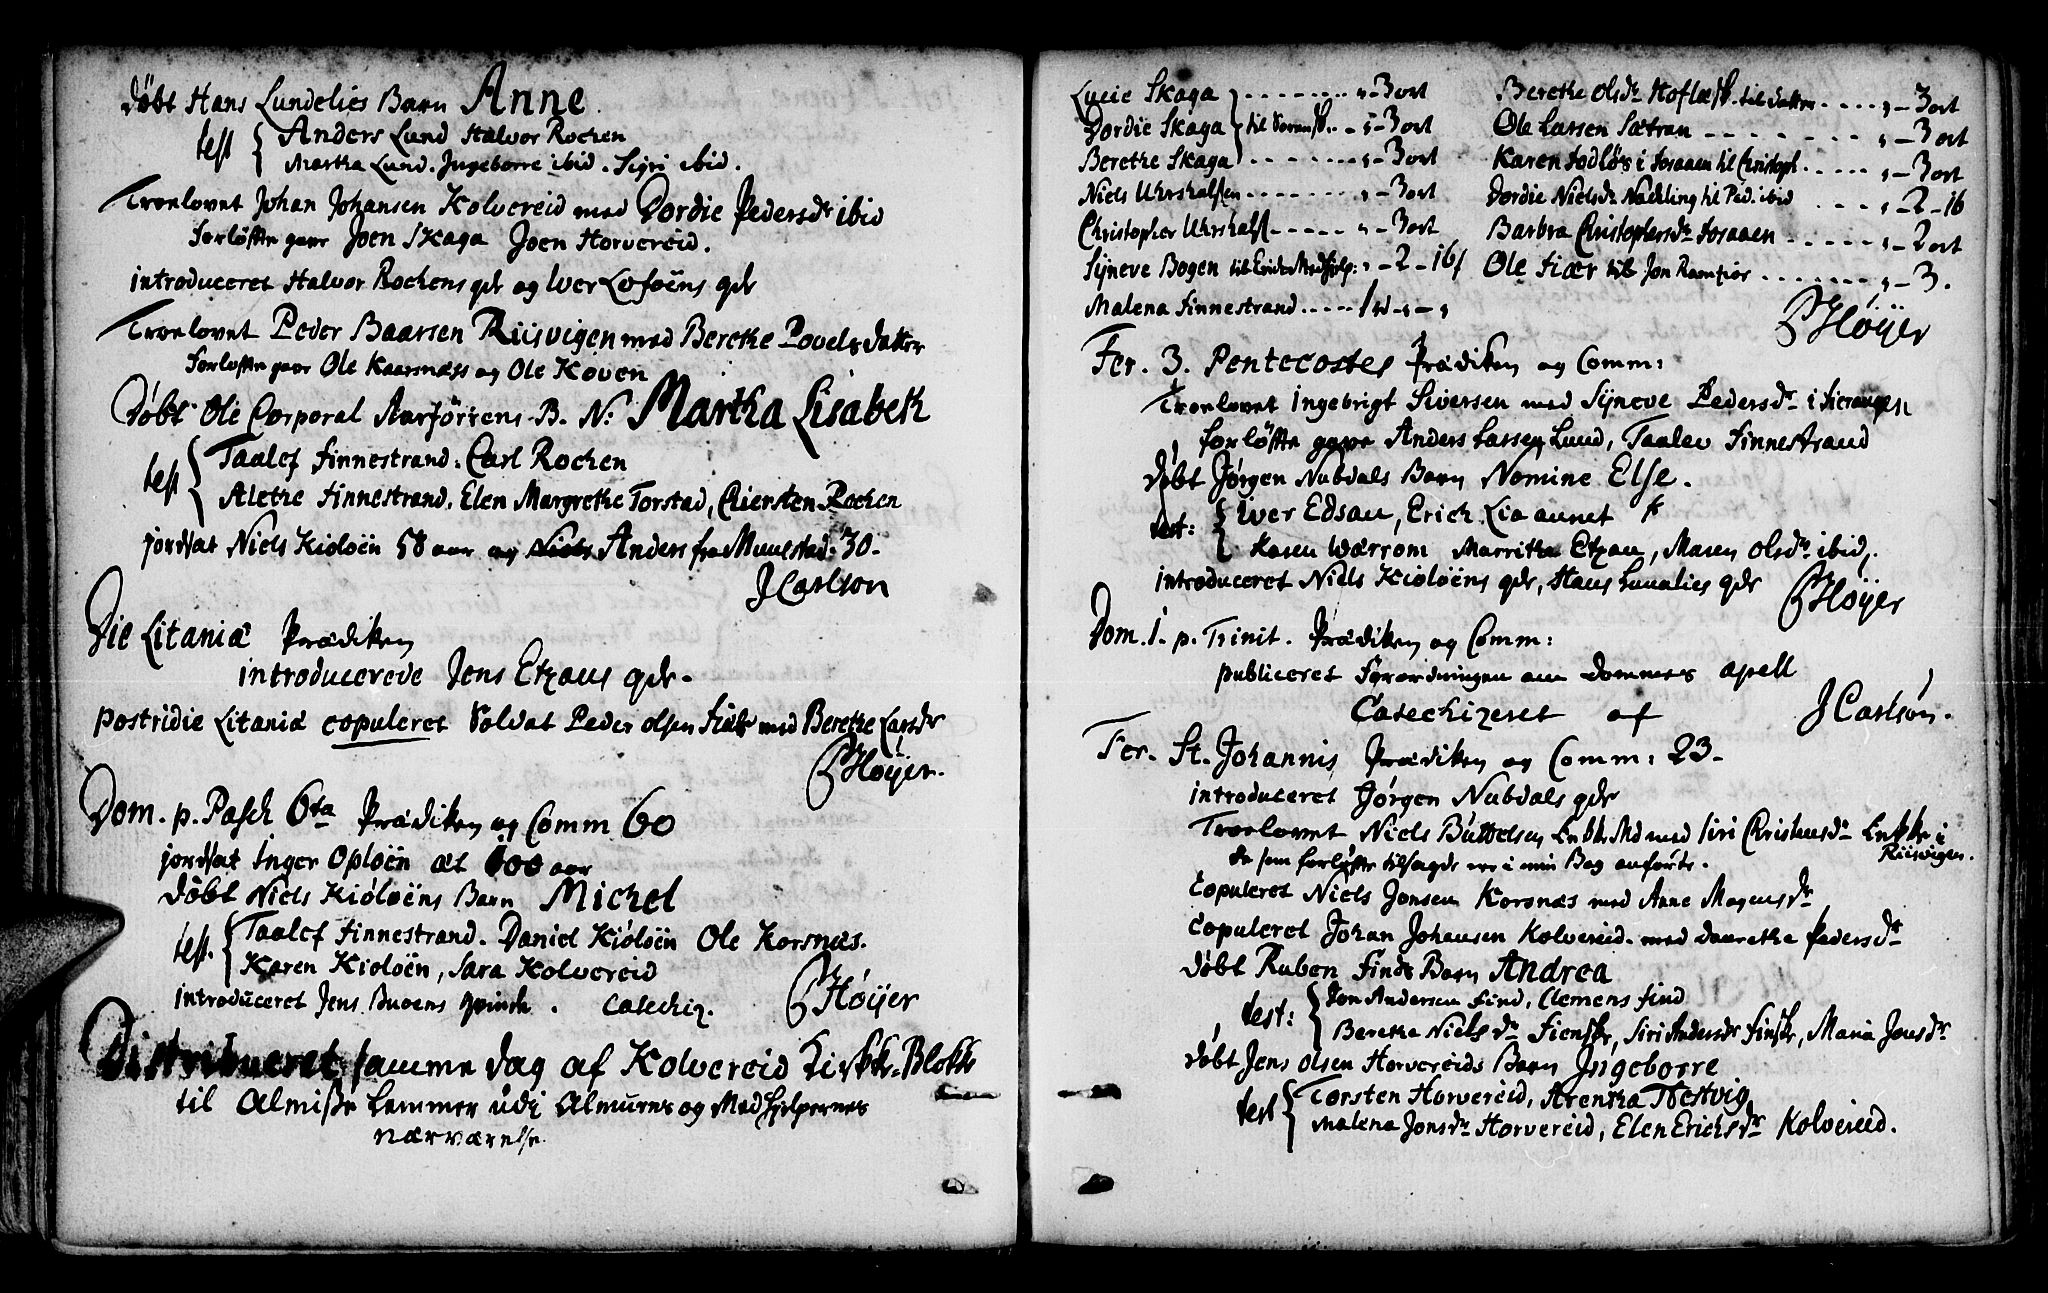 Döbt Hans Lundelies Barn Anne.
test { Anders Lund Halvor Rochen
Martha Lund. Ingeborre ibid. Sigri ibid.
Troelovet Johan Johansen Kolvereid med Dordie Pedersdr ibid
Forløffte gaar Joen Skaga Joen Horvereid.
introduceret Halvor Rochens qde og Iver Loføens qde
Troelovet Peder Baarsen Riisvigen med Berethe Povels datter
Forløffte gaar Ole Kaarsnæss og Ole Koven
Döbt Ole Corporal Aarförsens B. N: Martha Lisabeth
test { Taalef Finnestrand. Carl Rochen
Alethe Finnestrand, Elen Margrethe Torstad, Chiersten Rochen
jordsat Niels Kiöloën 58 aar og Anders fra Muustad. 30.
J Carlson
Die Litaniæ Prædiken
introducerede Jens Etzaus qde.
postridie Litaniæ copuleret Soldat Peder olsen med Berethe Larsdr
P Höÿer.
Dom. p. Pasch 6ta Prædiken og Comm 60
jordsat Inger Oploën æt 100 aar
Döbt Niels Kiöloëns Barn Michel
test. { Taalef Finnestrand. Daniel Kiöloën Ole Korsnæs.
Karen Kioloën, Sara Kolvereid
introduceret Jens Buoens qvinde. Catechiz. P Höÿer
Distribueret samme dag af Kolvereid Kirkke-Blokk
til Almisse Lemmer udj Almuens og Medhjelpernes
nærværelse.
Lucie Skaga - - - - - - - - 3 ort
Dordie Skaga } til - 3 ort
Berethe Skaga - - - - - - - 3 ort
Niels Uhrshalsen - - - - - - - 3 ort
Christopher Uhrshalsl - - - - - 3 ort
Sÿneve Bogen til 2 - 16
Malena Finnestrand . . . . . 1
Berethe olsdr til datter . . . . . - 3 ort
Ole Larsen Sætran - - - - - - - 3 ort
Karen i Foraaen til Christoph. . . . . . - 3 ort
Dordie Nielsdr til Ped. ibid . . . . - 2 - 16
Barbra Christophersdr Foraaen - - - - - - 2 ort
Ole Fiær til Jon - - - - - - - 3.
P Höÿer
Fer. 3. Pentecostes Prædiken og Comm:
Troelovet Ingebrigt Siversen med Sÿneve Pedersdr i
forløffte gave Anders Larsen Lund, Taalev Finnestrand
Döbt Jørgen Nubdals Barn Nomine Else.
test: { Iver Edsau, Erich Lia annet
Karen Wærrom Marritha Etzau, Maren Olsdr ibid.
introduceret Niels Kiöloëns qde, Hans Lundlies qde P Höÿer
Dom. 1. p. Trinit. Prædiken og Comm:
publiceret Forordningen om Dommers apell
Catechizeret af J Carlson.
Fer. St. Johannis Prædiken og Comm: 23.
introduceret Jørgen Nubdals qde
Troelovet Niels med Siri Christensdr Enkke i
Riisvigen.
de som forløffte tilsagde ere i min Bog anförte.
Copuleret Niels Jonsen Korsnæs med Anne Mogensdr
Copuleret Johan Johansen Kolvereid. med Daarethe Pedersdr
Döbt Ruben Finds Barn Andrea
test: { Jon Andersen Find, Clemens Find
Berethe Nielsdr Siri Andersdr Finsk, Maria Jonsdr
Döbt Jens olsen Horvereids Barn Ingeborre
test { Torsten Horvereid, Arentha Tetvig,
Malena Jonsdr Horvereid, Elen Erichsdr Kolvereid.